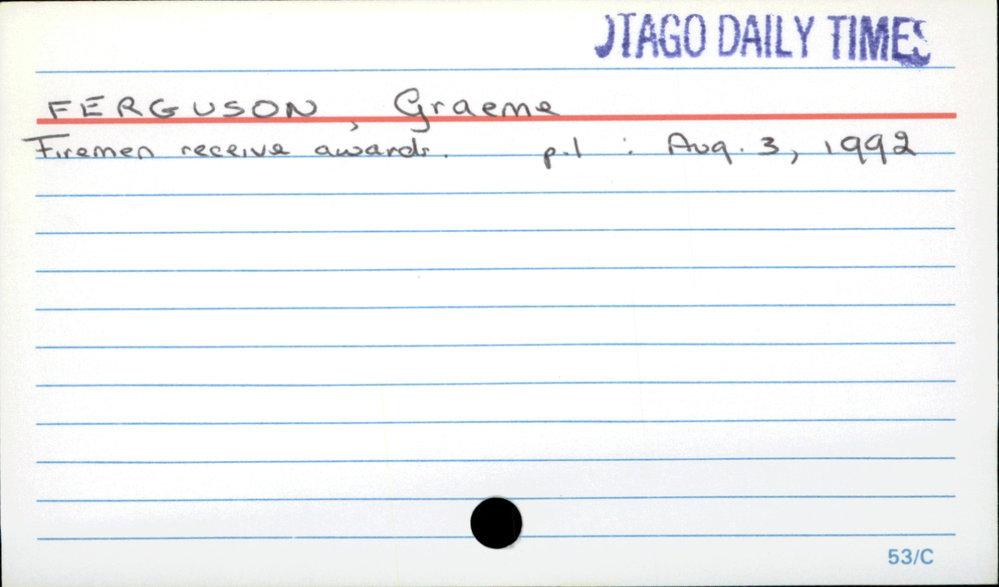 OTAGO DAILY TIMES
FERGUSON, Graeme
Firemen receive awards. p.1 : Aug. 3, 1992
53/C